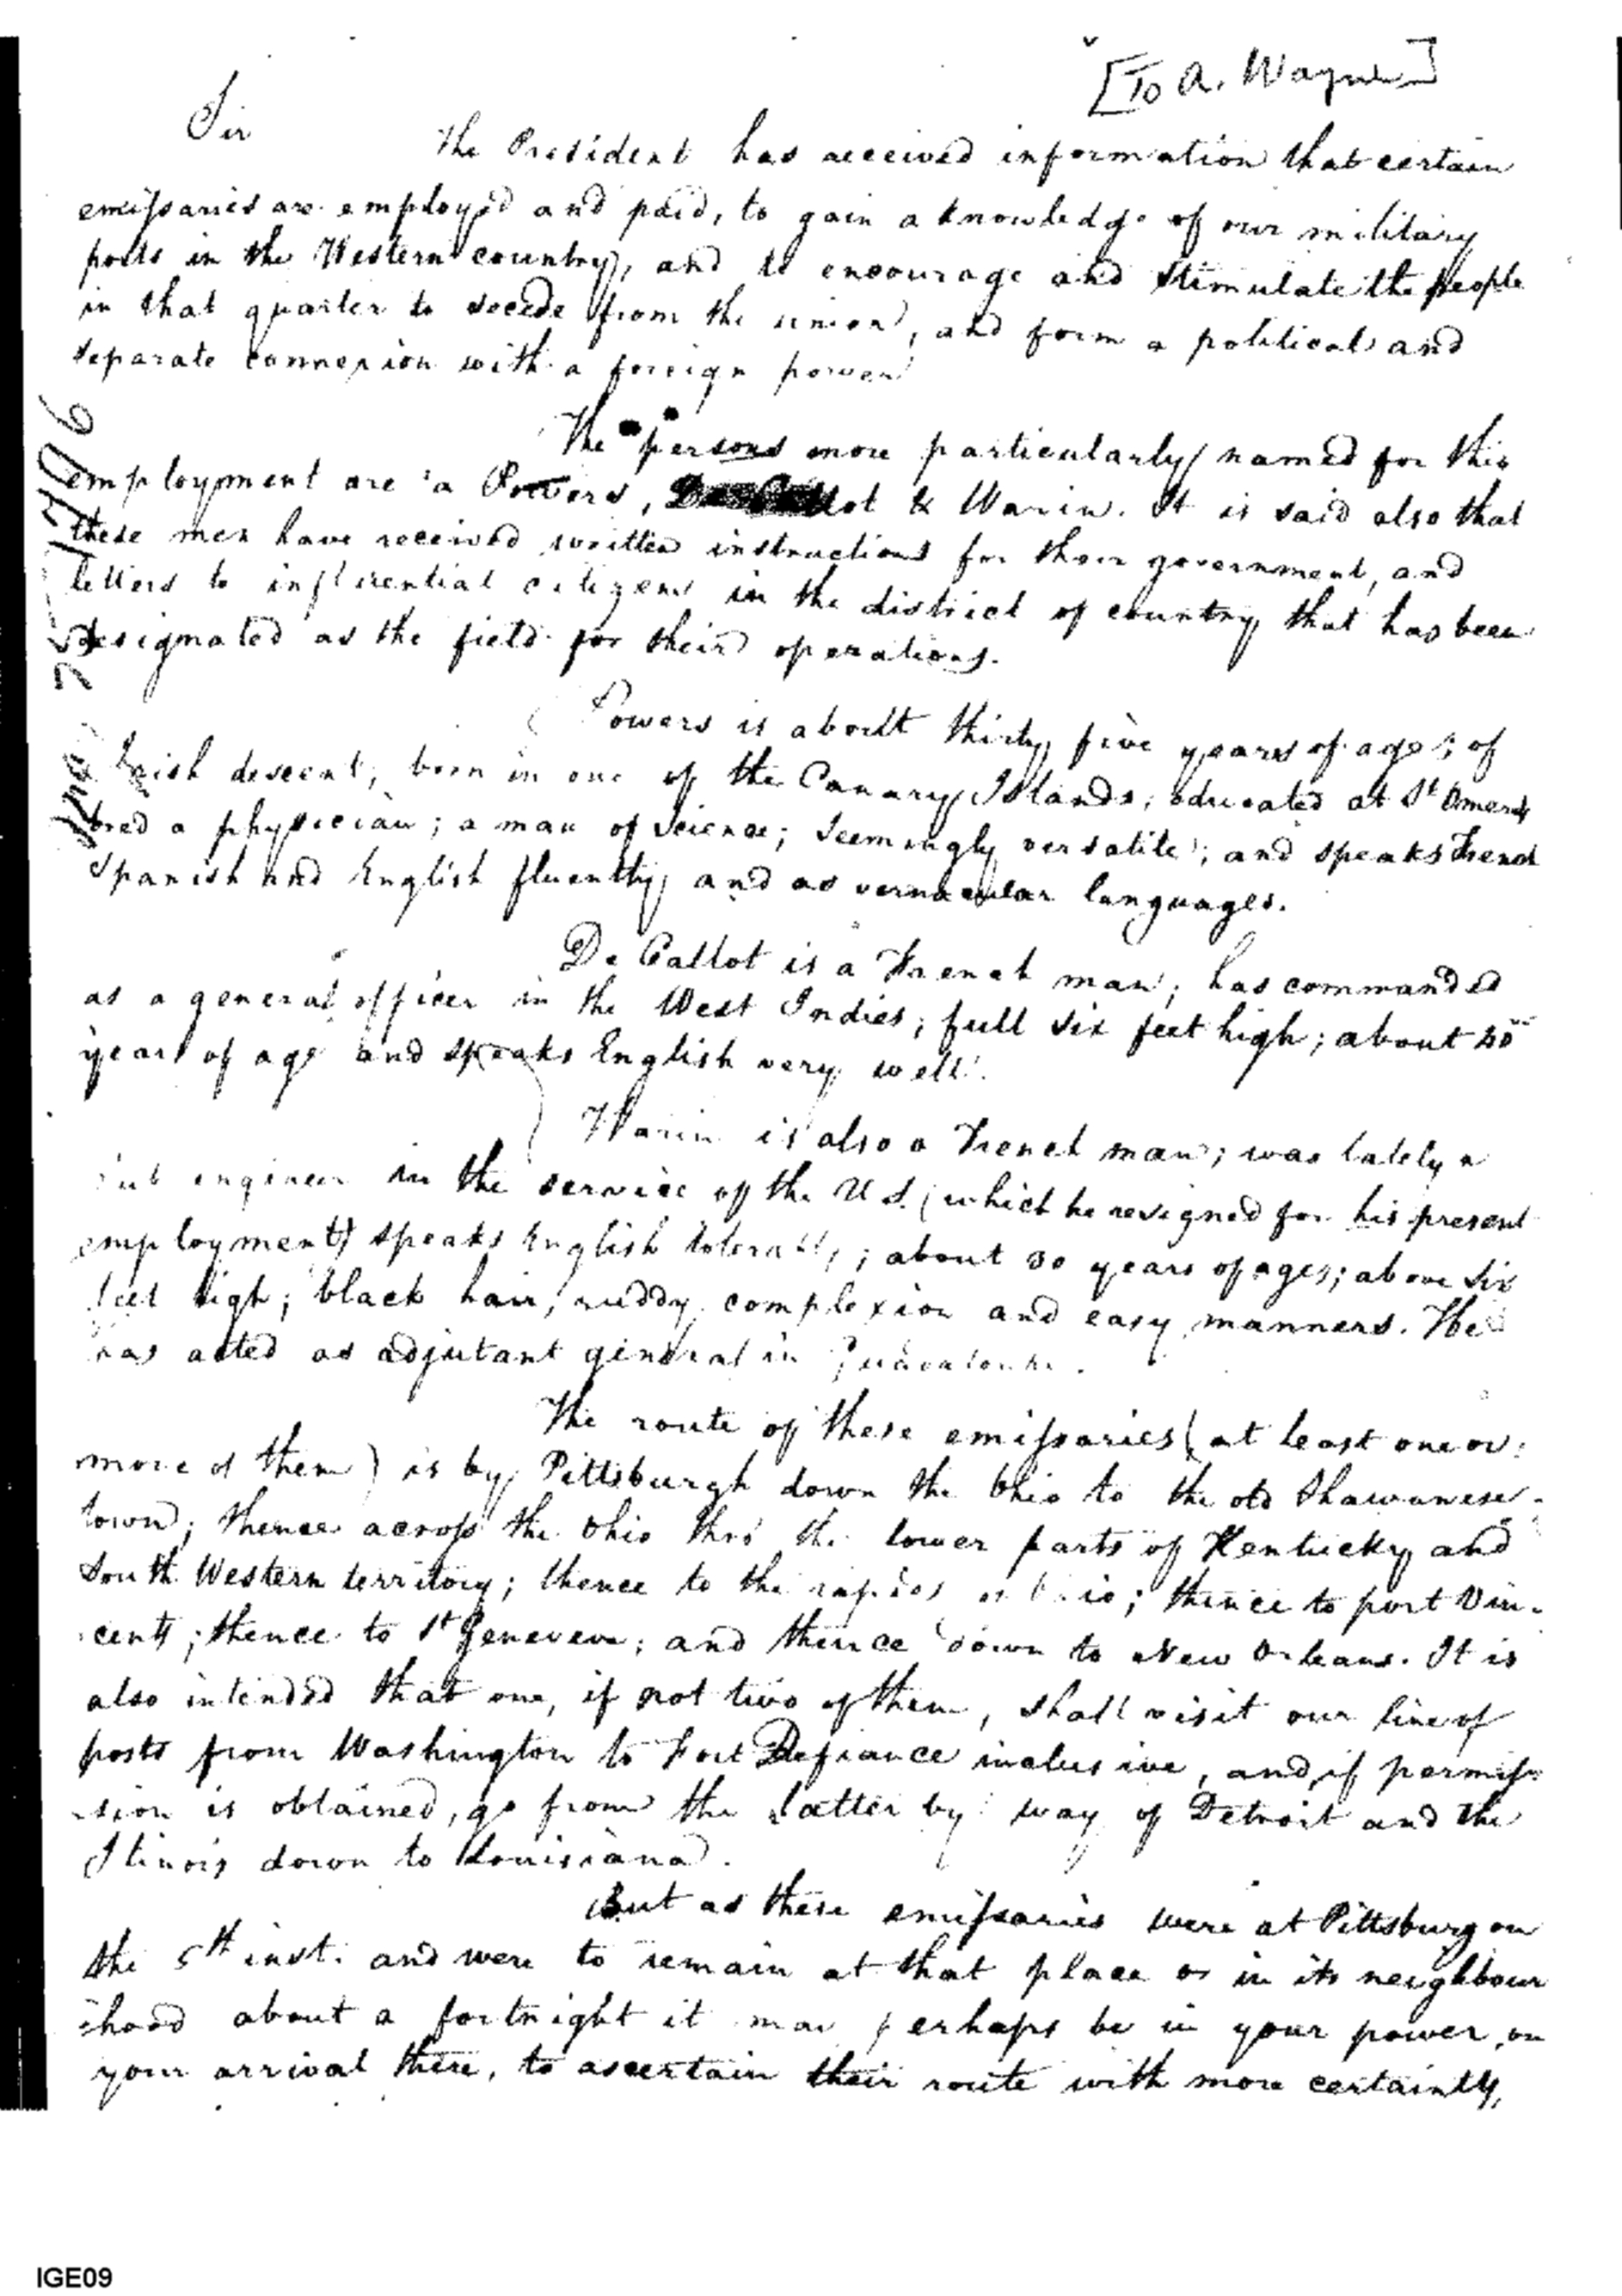 [To A. Wayne]
Sir
The President has received information that certain
emissaries are employed and paid, to gain a knowledge of our military
posts in the Western country, and to encourage and stimulate the people
in that quarter to secede from the union, and form a political and
separate connexion with a foreign power
The persons more particularly named for this
employment are a Powers, De Callot & Warin. It is said also that
these men have received written instructions for their government, and
letters to influential citizens in the district of country that has been
designated as the field for their operations.
Powers is about thirty five years of age; of
Irish descent; born in one of the Canary Islands; educated at St Omers
bred a physician; a man of science; seemingly versatile; and speaks French
Spanish and English fluently, and as vernacular languages.
De Callot is a French man; has commanded
as a general officer in the West Indies; full six feet high; about
years of age and speaks English very well.
Warin is also a French man; was lately a
sub engineer in the service of the U S. (which he resigned for his present
employment) speaks English tolerably; about 30 years of age; above six
feet high; black hair, ruddy complexion and easy manners. He
has acted as adjutant general in Guadaloupe.
The route of these emissaries (at least one or
more of them) is by Pittsburgh down the Ohio to the old Shawanese
town; thence across the Ohio thro' the lower parts of Kentucky and
South Western territory; thence to the rapids of Ohio; thence to port Vin-
cents; thence to St Genevieve; and thence down to New Orleans. It is
also intended that one, if not two of them, shall visit our line of
posts from Washington to Fort Defiance inclusive, and, if permis-
-sion is obtained, go from the latter by way of Detroit and the
Ilinois down to Louisiana.
But as these emissaries were at Pittsburg on
the 5th inst. and were to remain at that place or in its neighbour
-hood about a fortnight it may perhaps be in your power, on
your arrival there, to ascertain their route with more certainty,
IGE09